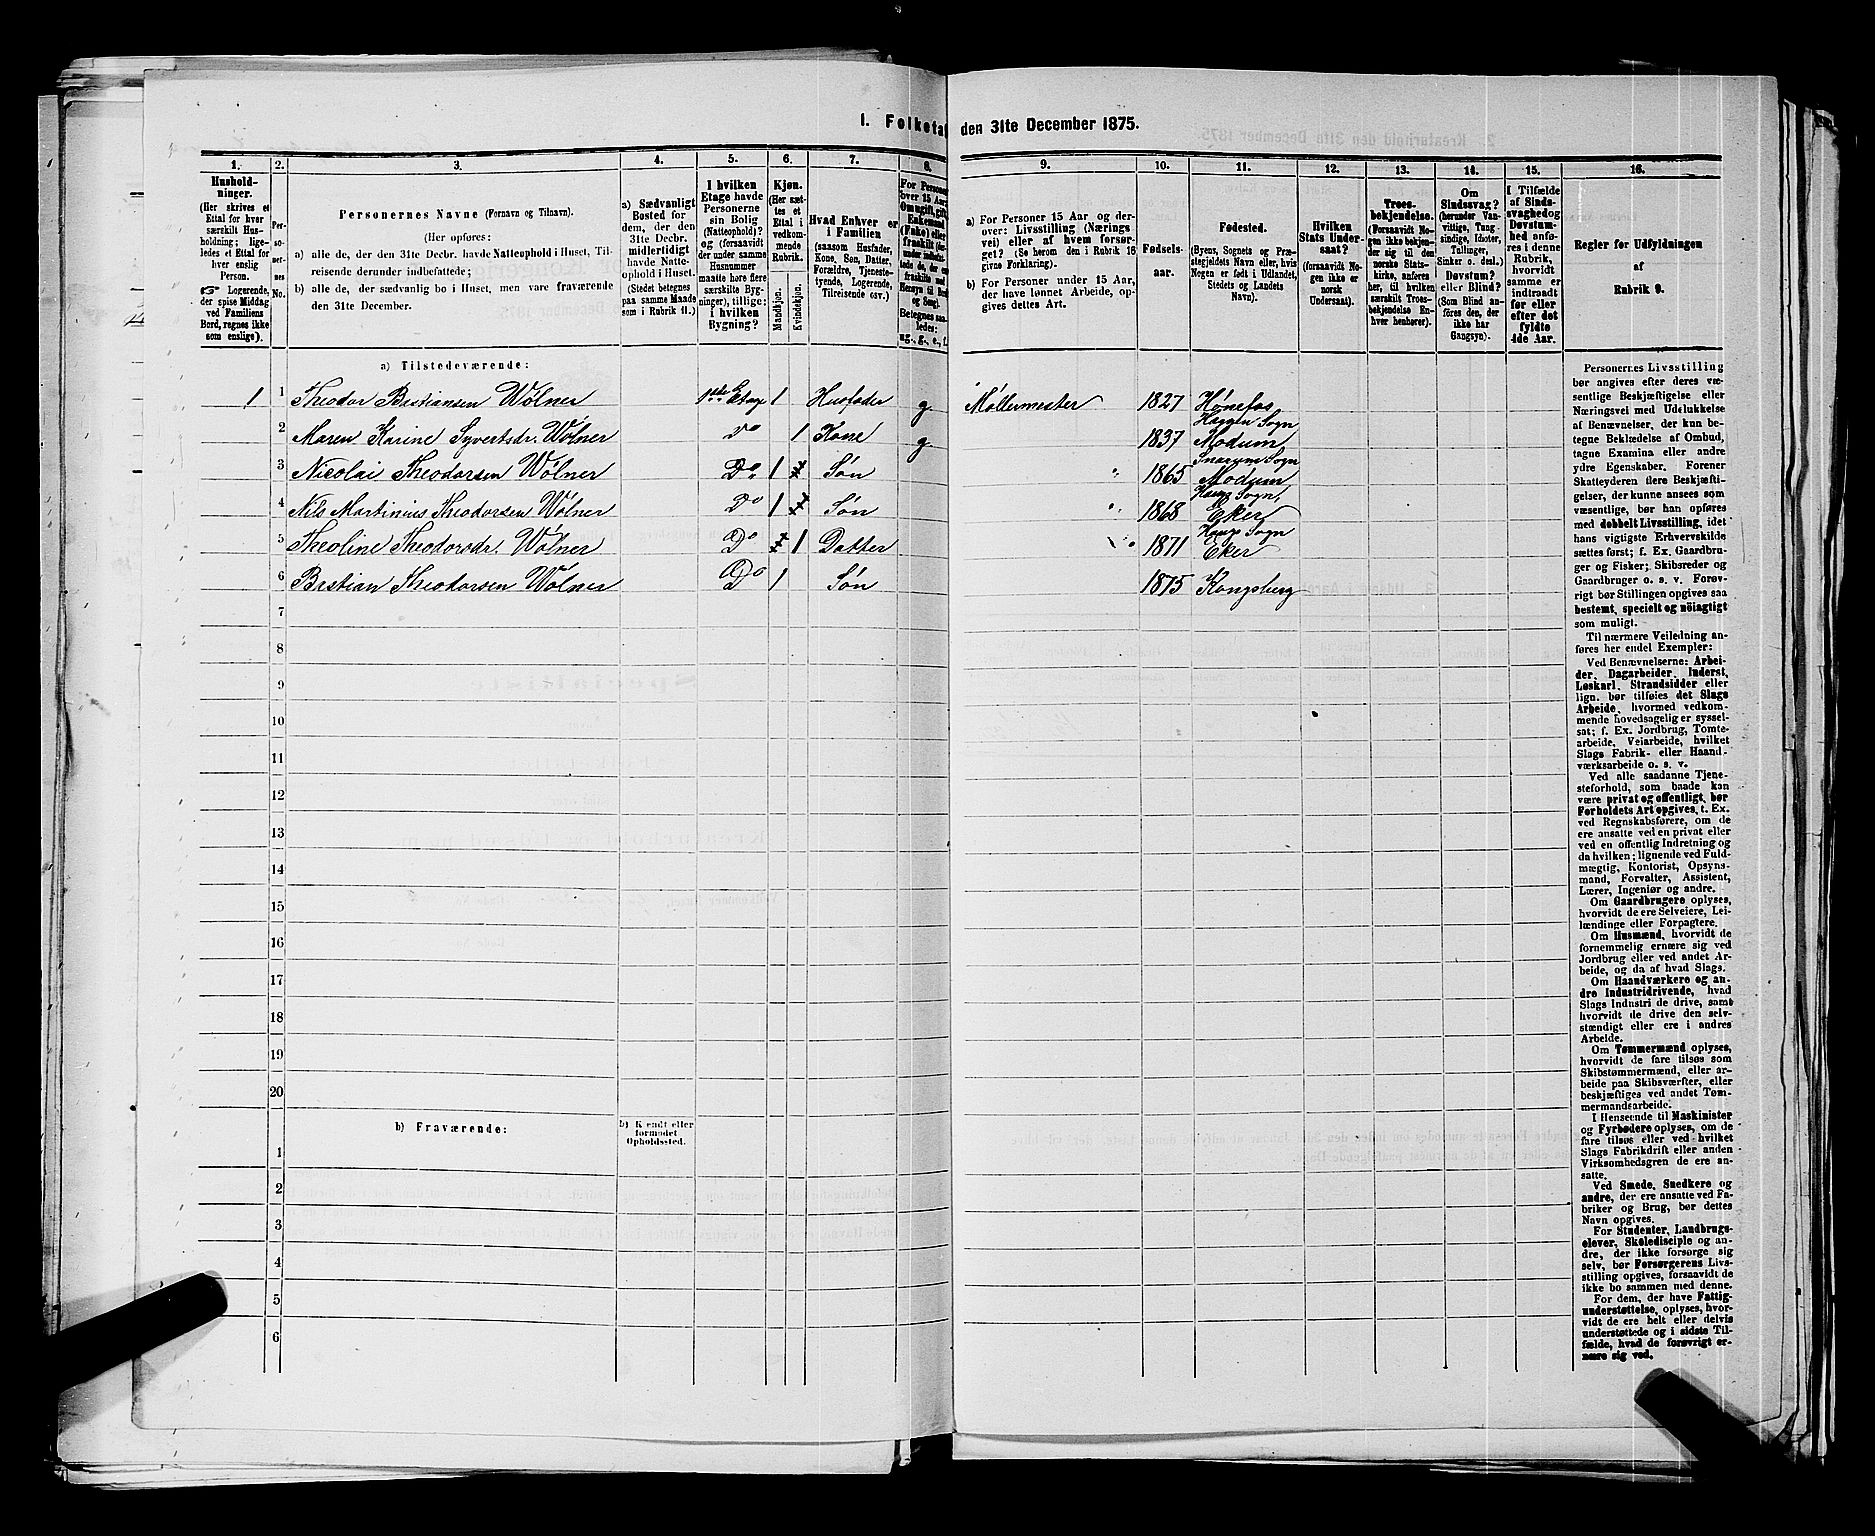 1. Folketæl den 31te December 1875.
1. 2. 3. 4. 5. 6. 7. 8. 9. 10. 11. 12. 13. 14. 15. 16.
Hushold-
ninger.
(Her skrives et
Ettal for hver
særskilt Hus-
holdning; lige-
ledes et Ettal for
hver enslig
Person.
☞ Logerende,
der spise Middag
ved Familiens
Bord, regnes ikke
som enslige).
Per-
so-
ner-
nes
No.
Personernes Navne (Fornavn og Tilnavn).
(Her opføres:
a) alle de, der den 31te Decbr. havde Natteophold i Huset, Til-
reisende derunder indbefattede;
b) alle de, der sædvanlig bo i Huset, men vare fraværende
den 31te December.
a) Sædvanligt
Bosted for
dem, der den
31te Decbr.
midlertidigt
havde Natte
ophold i Huset.
(Stedet betegnes
paa samme Maade
som i Rubrik 11.)
I hvilken
Etage havde
Personerne
sin Bolig
(Natteophold)?
og (forsaavidt
der under samme
Husnummer
maatte høre flere
særskilte Byg-
ninger), tillige:
i hvilken
Bygning?
Kjøn.
(Her sæt-
tes et
Ettal i
vedkom-
mende
Rubrik.
Mandkjøn.
Kvindekjøn.
Hvad Enhver er
i Familien
(saasom Husfader,
Kone, Søn, Datter,
Forældre, Tjeneste-
tyende, Logerende,
Tilreisende osv.)
For Personer
over 15 Aar:
Om ugift, gift,
Enkemand
(Enke) eller
fraskilt
Betegnes saa-
ledes:
ug., g., e., f.
a) For Personer 15 Aar og der-
over: Livsstilling (Nærings
vei) eller af hvem forsør-
get? (Se herom den i Rubrik 16
givne Forklaring).
b) For Personer under 15 Aar,
der have lønnet Arbeide, op-
gives dettes Art.
Fødsels-
aar.
Fødested.
(Byens, Sognets og Præ-
stegjeldets Navn eller, hvis
Nogen er født i Udlandet,
Stedets og Landets
Navn).
Hvilken
Stats Under-
saat?
(forsaavidt No-
gen ikke er
norsk
Undersaat).
Troes-
bekjendelse.
(Forsaavidt No-
gen ikke bekjen-
der sig til den
norske Stats-
kirke, anføres
her, til hvilken
særskilt Troes-
bekjendelse En-
hver henhører).
Om
Sindssvag?
(herunder Van-
vittige, Tung-
sindige, Idioter,
Tullinger,
Sinker o. desl.)
Døvstum?
eller Blind?
(Som Blind an-
føres den, der
ikke har
Gangsyn).
I Tilfælde
af Sinds-
svaghed og
Døvstum-
hed anfø-
res i denne
Rubrik,
hvorvidt
samme er
indtraadt
før eller
efter det
fyldte
4de Aar.
Regler for Udfyldningen
af
Rubrik 9.
a) Tilstedeværende:
1 1 Theodor Bastiansen Wölner 1ste Etage 1 Husfader g. Møllermester 1827 Hønefos
2 Maren Karine Syvertsdr. Wölner Do 1 Kone g. 1837 Haggen Sogn Modum
3 Nicolai Theodorsen Wölner Do 1 Søn " 1865 Snarum Sogn Modum
4 Nils Martinius Theodorsen Wölner Do 1 Søn " 1868 Haug Sogn, Eker
5 Theoline Theodorsdr. Wölner Do 1 Datter 1871 Haug Sogn Eker
6 Bastian Theodorsen Wölner Do 1 Søn 1875 Kongsberg
7
8
9
10
11
12
13
14
15
16
17
18
19
20
b) Fraværende:
b) Kjendt eller
formodet
Opholdssted.
1
2
3
4
5
6
Personernes Livsstilling
bør angives efter deres væ-
sentlige Beskjæftigelse eller
Næringsvei med Udelukkelse
af Benævnelser, der kun be-
tegne Beklædelse af Ombud,
tagne Examina eller andre
ydre Egenskaber. Forener
Skatteyderen flere Beskjæfti-
gelser, der kunne ansees som
væsentlige, bør han opføres
med dobbelt Livsstilling, idet
hans vigtigste Erhvervskilde
sættes først; f. Ex. Gaardbru-
ger og Fisker; Skibsreder og
Gaardbruger o. s. v. Forøv-
rigt bør Stillingen opgives saa
bestemt, specielt og nöiagtigt
som muligt.
Til nærmere Veiledning an-
føres her endel Exempler:
Ved Benævnelserne: Arbei-
der, Dagarbeider, Inderst,
Løskarl, Strandsidder eller
lign. bør tilføies det Slags
Arbeide, hvormed vedkom-
mende hovedsagelig er syssel-
sat; f. Ex. Jordbrug, Tomte-
arbeide, Veiarbeide, hvilket
Slags Fabrik- eller Haand-
værksarbeide o. s. v.
Ved alle saadanne Tjene-
steforhold, som baade kan
være privat og offentligt, bør
Forholdets Art opgives, t. Ex.
ved Regnskabsførere, om de
ere ansatte ved en privat eller
ved en offentlig Indretning og
da hvilken; lignende ved Fuld-
mægtig, Kontorist, Opsyns-
mand, Forvalter, Assistent,
Lærer, Ingeniør og andre.
Om Gaardbrugere oplyses,
hvorvidt de ere Selveiere, Lei-
lændinge eller Forpagtere.
Om Husmænd, hvorvidt de
fornemmelig ernære sig ved
Jordbrug eller ved andet Ar-
beide, og da af hvad Slags.
Om Haandværkere og an-
dre Industridrivende, hvad
Slags Industri de drive, samt
hvorvidt de drive den selv-
stændigt eller ere i andres
Arbeide.
Om Tømmermænd oplyses,
hvorvidt de fare tilsøs som
Skibstømmermænd, eller ar-
beide paa Skibsværfter, eller
beskjæftiges ved andet Tøm-
mermandsarbeide.
I Henseende til Maskinister
og Fyrbødere oplyses, om de
fare tilsøs eller ved hvilket
Slags Fabrikdrift eller anden
Virksomhedsgren de ere an-
satte.
Ved Smede, Snedkere og
andre, der ere ansatte ved Fa-
briker og Brug, bør dettes
Navn opgives.
For Studenter, Landbrugs-
elever, Skoledisciple og an-
dre, der ikke forsørge sig
selv, bør Forsørgerens Livs-
stilling opgives, forsaavidt de
ikke bo sammen med denne.
For dem, der have Fattig-
understøttelse, oplyses, hvor-
vidt de ere helt eller delvis
understøttede og i sidste Til-
fælde, hvad de forøvrigt er-
nære sig ved.